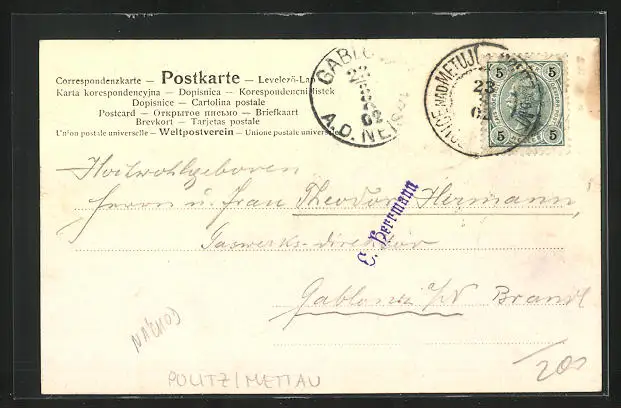 Correspondenzkarte — Postkarte — Levelező-Lap
Karta korespondencyjna — Dopisnica — Korespondencni listek
Dopisnice — Cartolina postale
Postcard — Открытое письмо — Briefkaart
Brevkort — Tarjetas postale
Union postale universelle — Weltpostverein — Unione postale univers
GABLO
A.D. NEIS
02
NAD METUJ
23
02
5 5
5 5
Hochwohlgeboren
Herrn u. Frau Theodor Hermann,
Gaswerks-direktor
E. Herrmann
Gablonz a/N Brandl
NÁCHOD
POLITZ/METTAU
200